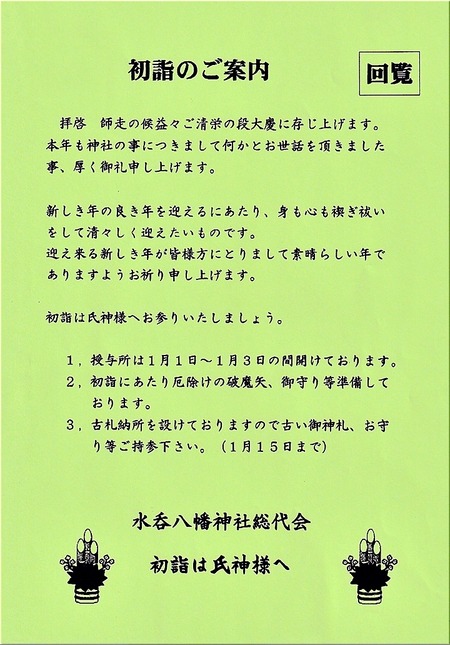 初詣のご案内
回覧
拝啓　師走の候益々ご清栄の段大慶に存じ上げます。
本年も神社の事につきまして何かとお世話を頂きました
事、厚く御礼申し上げます。
新しき年の良き年を迎えるにあたり、身も心も禊ぎ祓い
をして清々しく迎えたいものです。
迎え来る新しき年が皆様方にとりまして素晴らしい年で
ありますようお祈り申し上げます。
初詣は氏神様へお参りいたしましょう。
１，授与所は１月１日～１月３日の間開けております。
２，初詣にあたり厄除けの破魔矢、御守り等準備して
おります。
３，古札納所を設けておりますので古い御神札、お守
り等ご持参下さい。（１月１５日まで）
水呑八幡神社総代会
初詣は氏神様へ